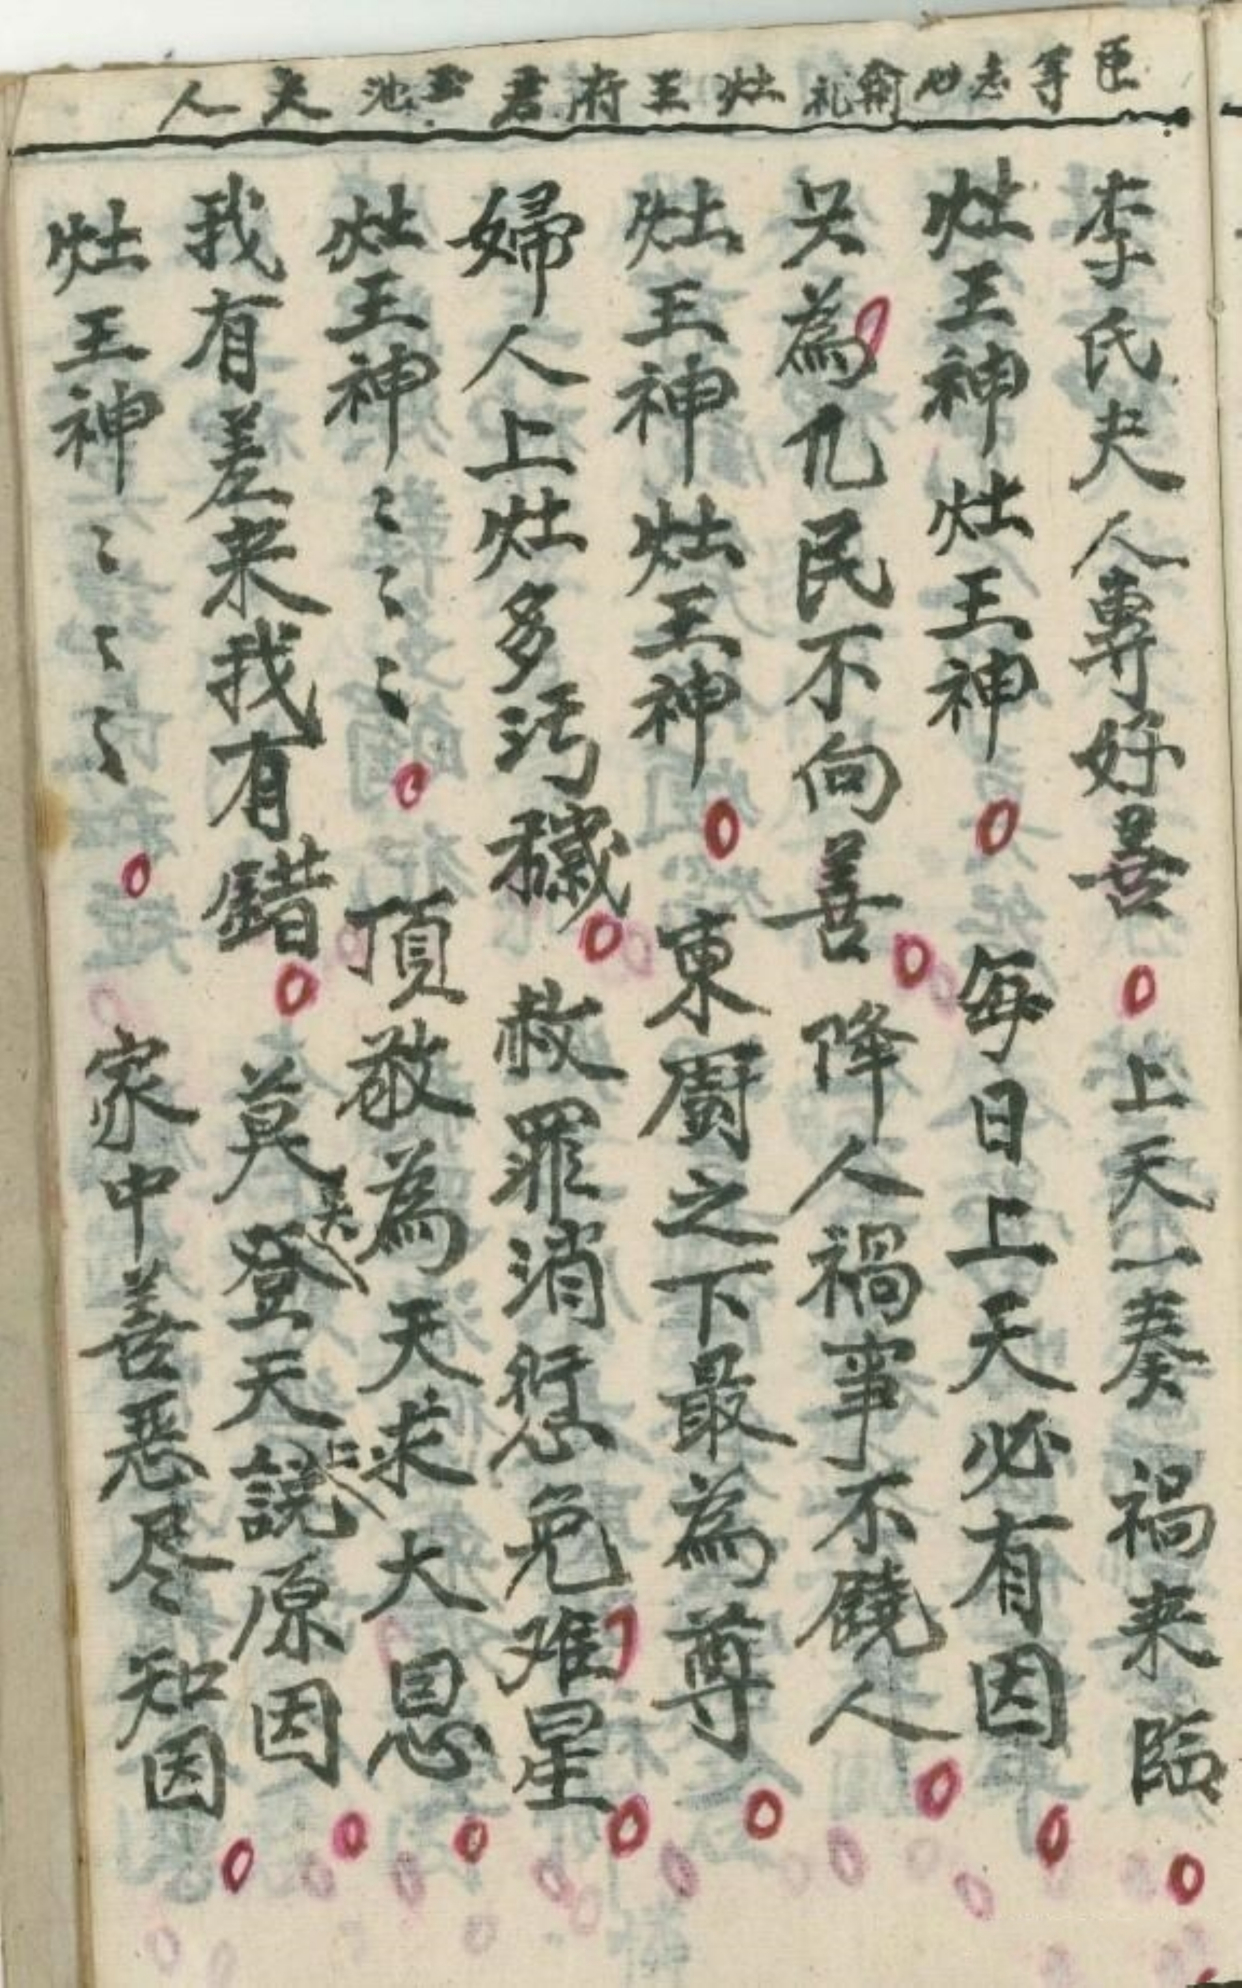 臣等志心俞礼灶王府君玉池夫人
李氏夫人專好善 上天一奏禍来臨
灶王神灶王神 每日上天必有因
只為凡民不向善 降人禍事不饒人
灶王神灶王神 東廚之下最為尊
婦人上灶多汚穢 赦罪消愆免难星
灶王神〻〻〻 頂敬為天求大恩
我有差来我有錯 莫登天說原因
灶王神〻〻〻 家中善惡尽知因